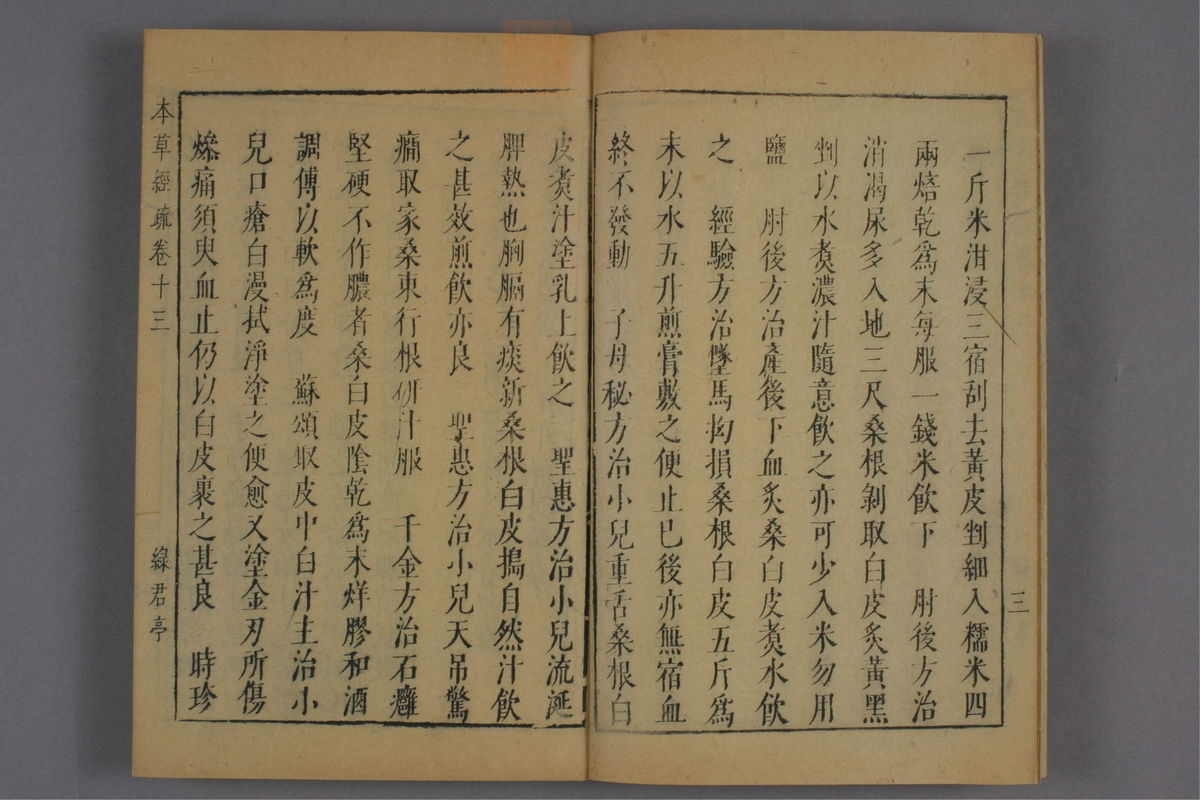 三
一斤米泔浸三宿刮去黃皮剉細入糯米四
兩焙乾爲末每服一錢米飲下　肘後方治
消渴尿多入地三尺桑根剝取白皮炙黃黑
剉以水煑濃汁隨意飲之亦可少入米勿用
鹽　肘後方治產後下血炙桑白皮煑水飲
之　經驗方治墜馬拗損桑根白皮五斤爲
末以水五升煎膏敷之便止已後亦無宿血
終不發動　子母秘方治小兒重舌桑根白
皮煑汁塗乳上飲之　聖惠方治小兒流涎
脾熱也胸膈有痰新桑根白皮搗自然汁飲
之甚效煎飲亦良　聖惠方治小兒天吊驚
癎取家桑東行根研汁服　千金方治石癰
堅硬不作膿者桑白皮陰乾爲末烊膠和酒
調傅以軟爲度　蘇頌取皮中白汁主治小
兒口瘡白漫拭淨塗之便愈又塗金刃所傷
燥痛須臾血止仍以白皮裹之甚良　時珍
本草經疏卷十三
綠君亭